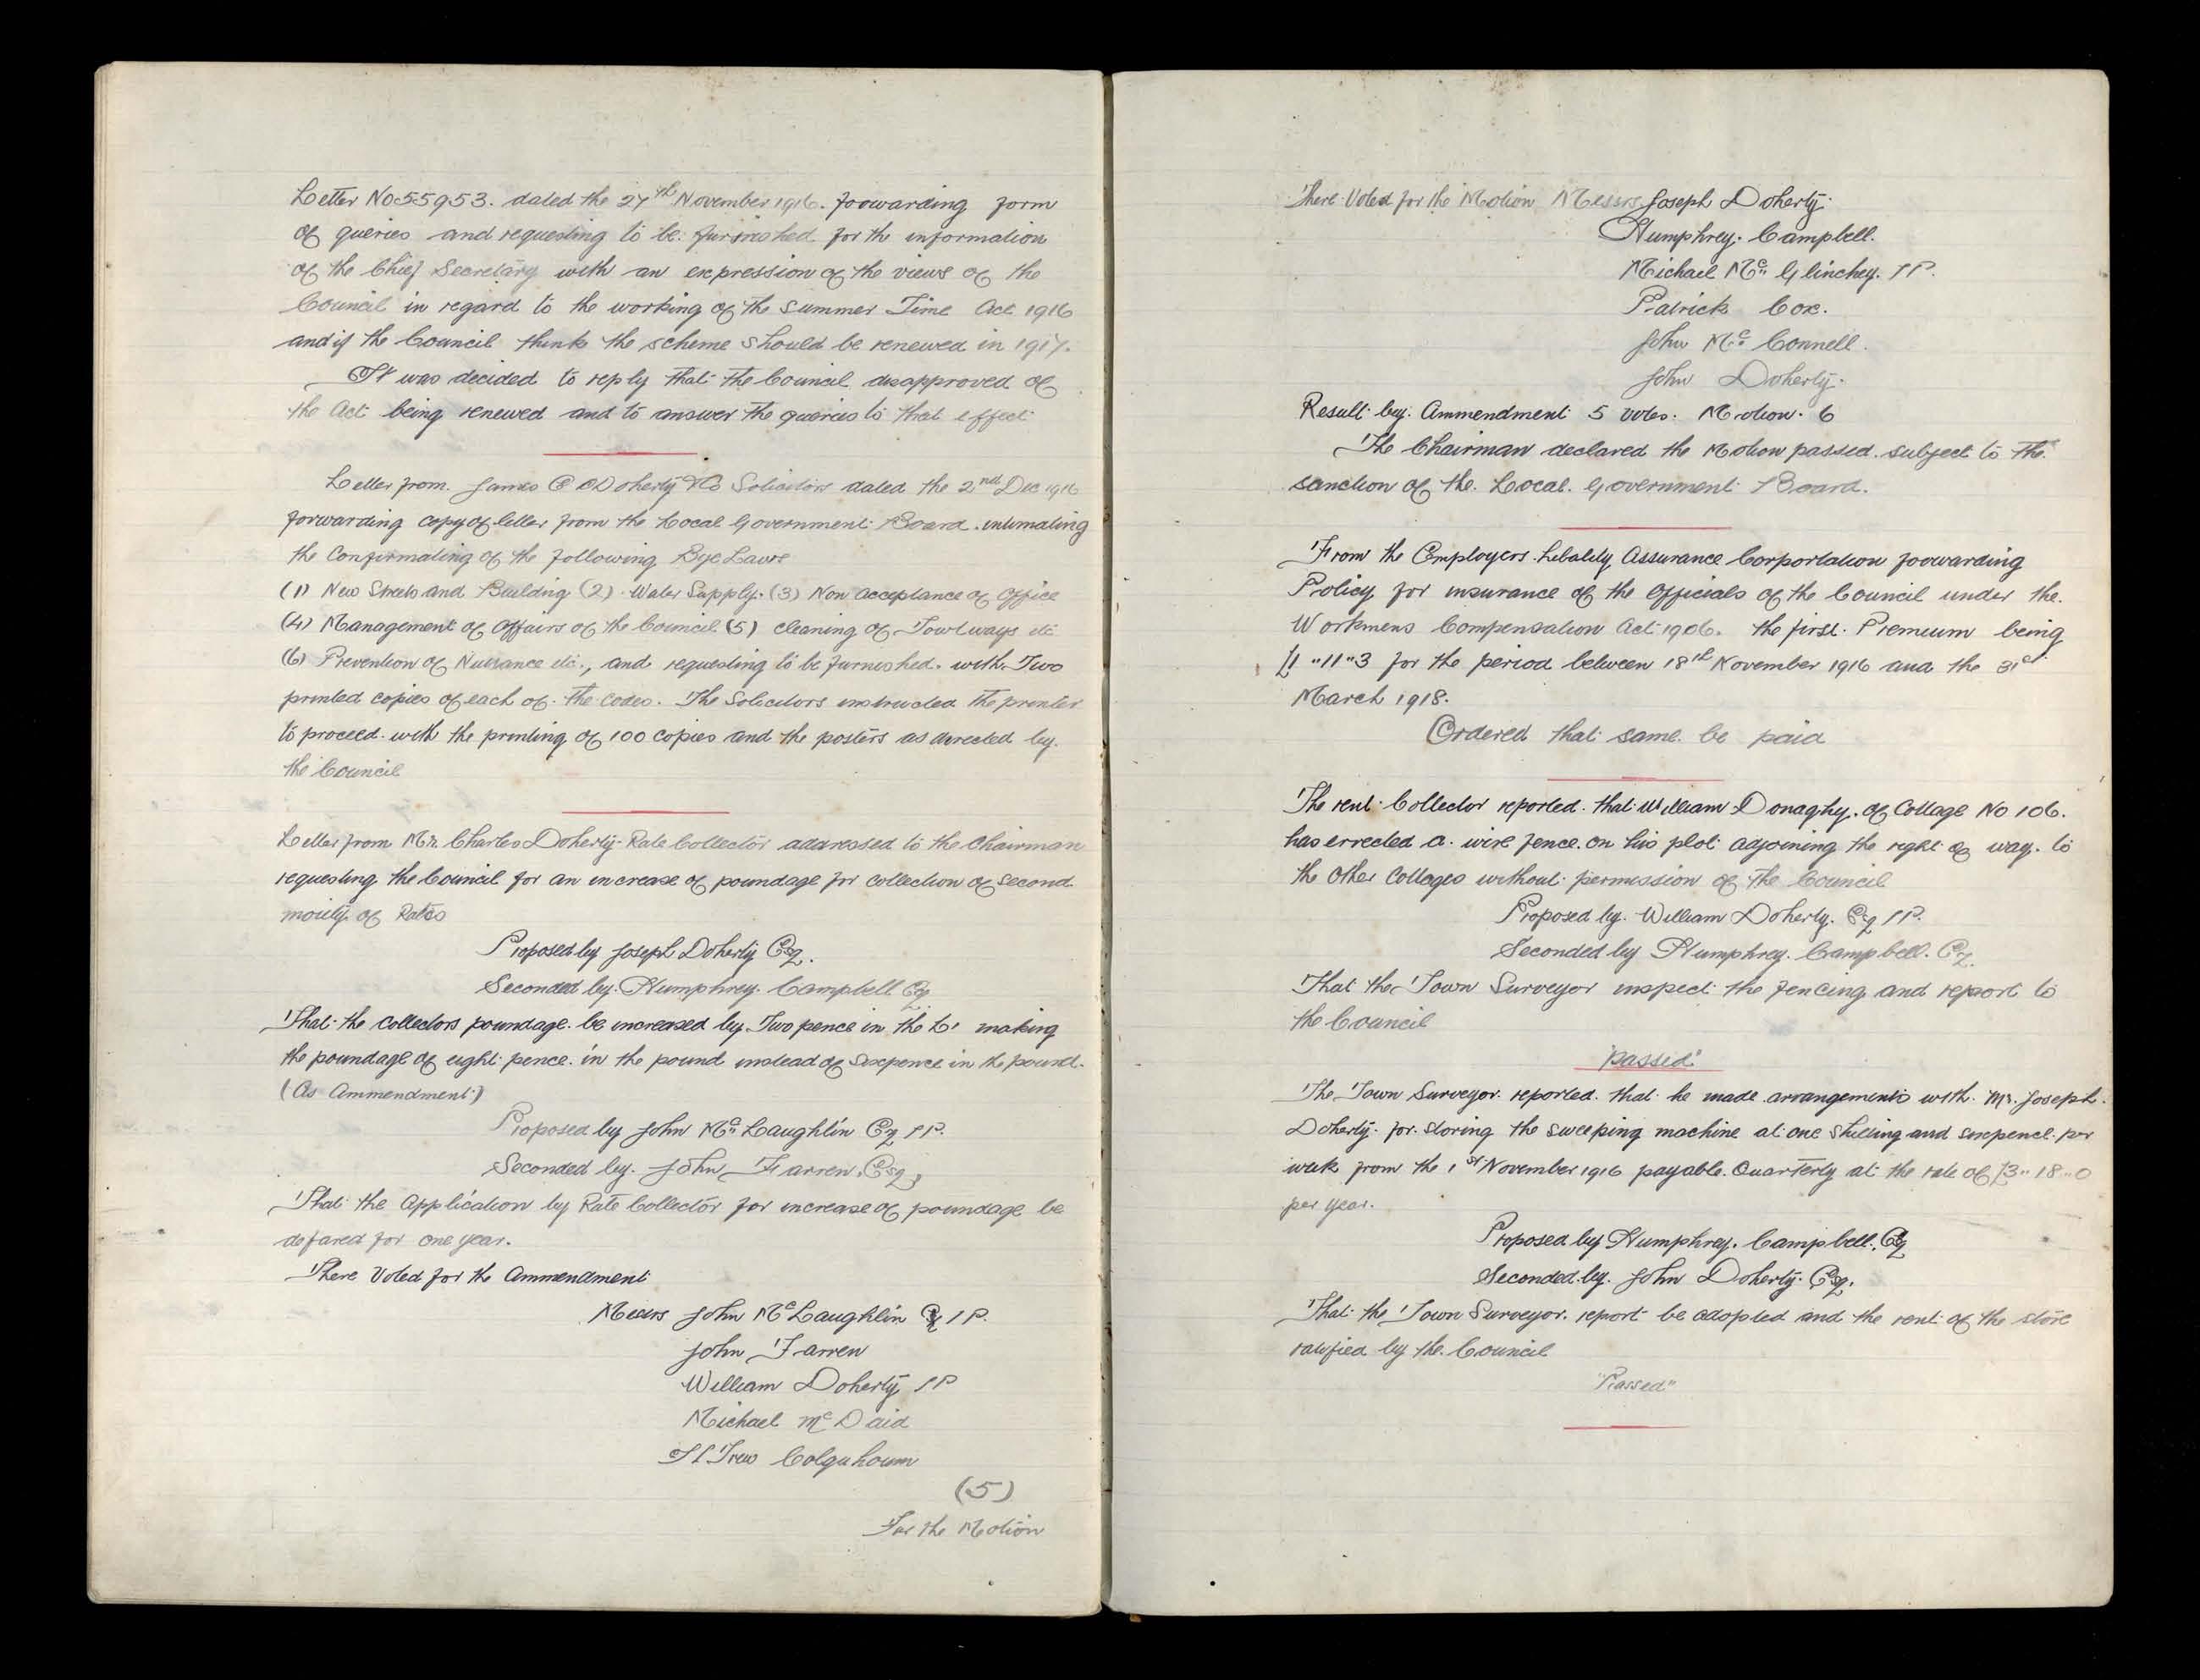 Letter No 55953. dated the 27th November 1916. foowarding form
of queries and requesting to be furnished for th information
of the Chief Secretary with an expression of the views of the
Council in regard to the working of the Summer Time Act 1916
and if the Council think the scheme should be renewed in 1917.
It was decided to reply that the Council disapproved of
the Act being renewed and to answer the queries to that effect
Letter from. James E O'Doherty & Co Solicitors dated the 2nd Dec 1916
forwarding copy of letter from the Local Government Board. intimating
the Confirmating of the following Bye Laws
(1) New Streets and Building (2) Water Supply. (3) Non acceptance of Office
(4) Management of Affairs of the Council. (5) Cleaning of Footways etc
(6) Prevention of Nuisance etc., and requesting to be furnished. with Two
printed copies of each of the Codes. The Solicitors instructed the printer
to proceed with the printing of 100 copies and the posters as directed by.
the Council
Letter from Mr. Charles Doherty Rate Collector addressed to the Chairman
requesting the Council for an increase of poundage for collection of second
moiety of Rates
Proposed by Joseph Doherty Esq.
Seconded by. Humphrey. Campbell Esq
That the Collectors poundage. be increased by Two pence in the £1 making
the poundage of eight pence. in the pound instead of Sixpence in the pound.
(As Ammendment)
Proposed by John Mc Laughlin Esq JP.
Seconded by. John Farren. Esq,
That the Application by Rate Collector for increase of poundage be
defared for one year.
There Voted for the Ammendment
Messrs John McLaughlin Esq JP.
John Farren
William Doherty JP
Michael McDaid
H Trew Colquhoum
(5)
For the Motion
There Voted for the Motion Messrs Joseph Doherty.
Humphrey. Campbell.
Michael Mc Glinchey. JP.
Patrick Cox.
John Mc Connell.
John Doherty.
Result by. Ammendment 5 votes. Motion. 6
The Chairman declared the Motion passed. subject to the
sanction of the. Local. Government Board.
From the Employers. Libality Assurance Corportation foowarding
Policy for insurance of the Officials of the Council under the.
Workmens Compensation Act 1906. the first. Premium being
£1"11"3 for the period between 18th November 1916 and the 31st
March 1918.
Ordered that same be paid
The rent Collector reported. that William Donaghy. of Cottage No 106.
has errected a. wire fence. on his plot adjoining the right of way. to
the Other Cottages without permission of the Council
Proposed by. William Doherty. Esq JP.
Seconded by Humphrey. Campbell. Esq.
That the Town Surveyor inspect the fencing and report to
the Council
"passed"
The Town Surveyor. reported. that he made arrangements with. Mr. Joseph.
Doherty. for. storing the sweeping machine at one shilling and sixpence. per
week from the 1st November 1916 payable. Quarterly at the rate of £3"18"0
per year.
Proposed by Humphrey. Campbell. Esq
Seconded by. John Doherty. Esq.
That the Town Surveyor. report be adopted and the rent of the store
ratified by the. Council
"Passed"